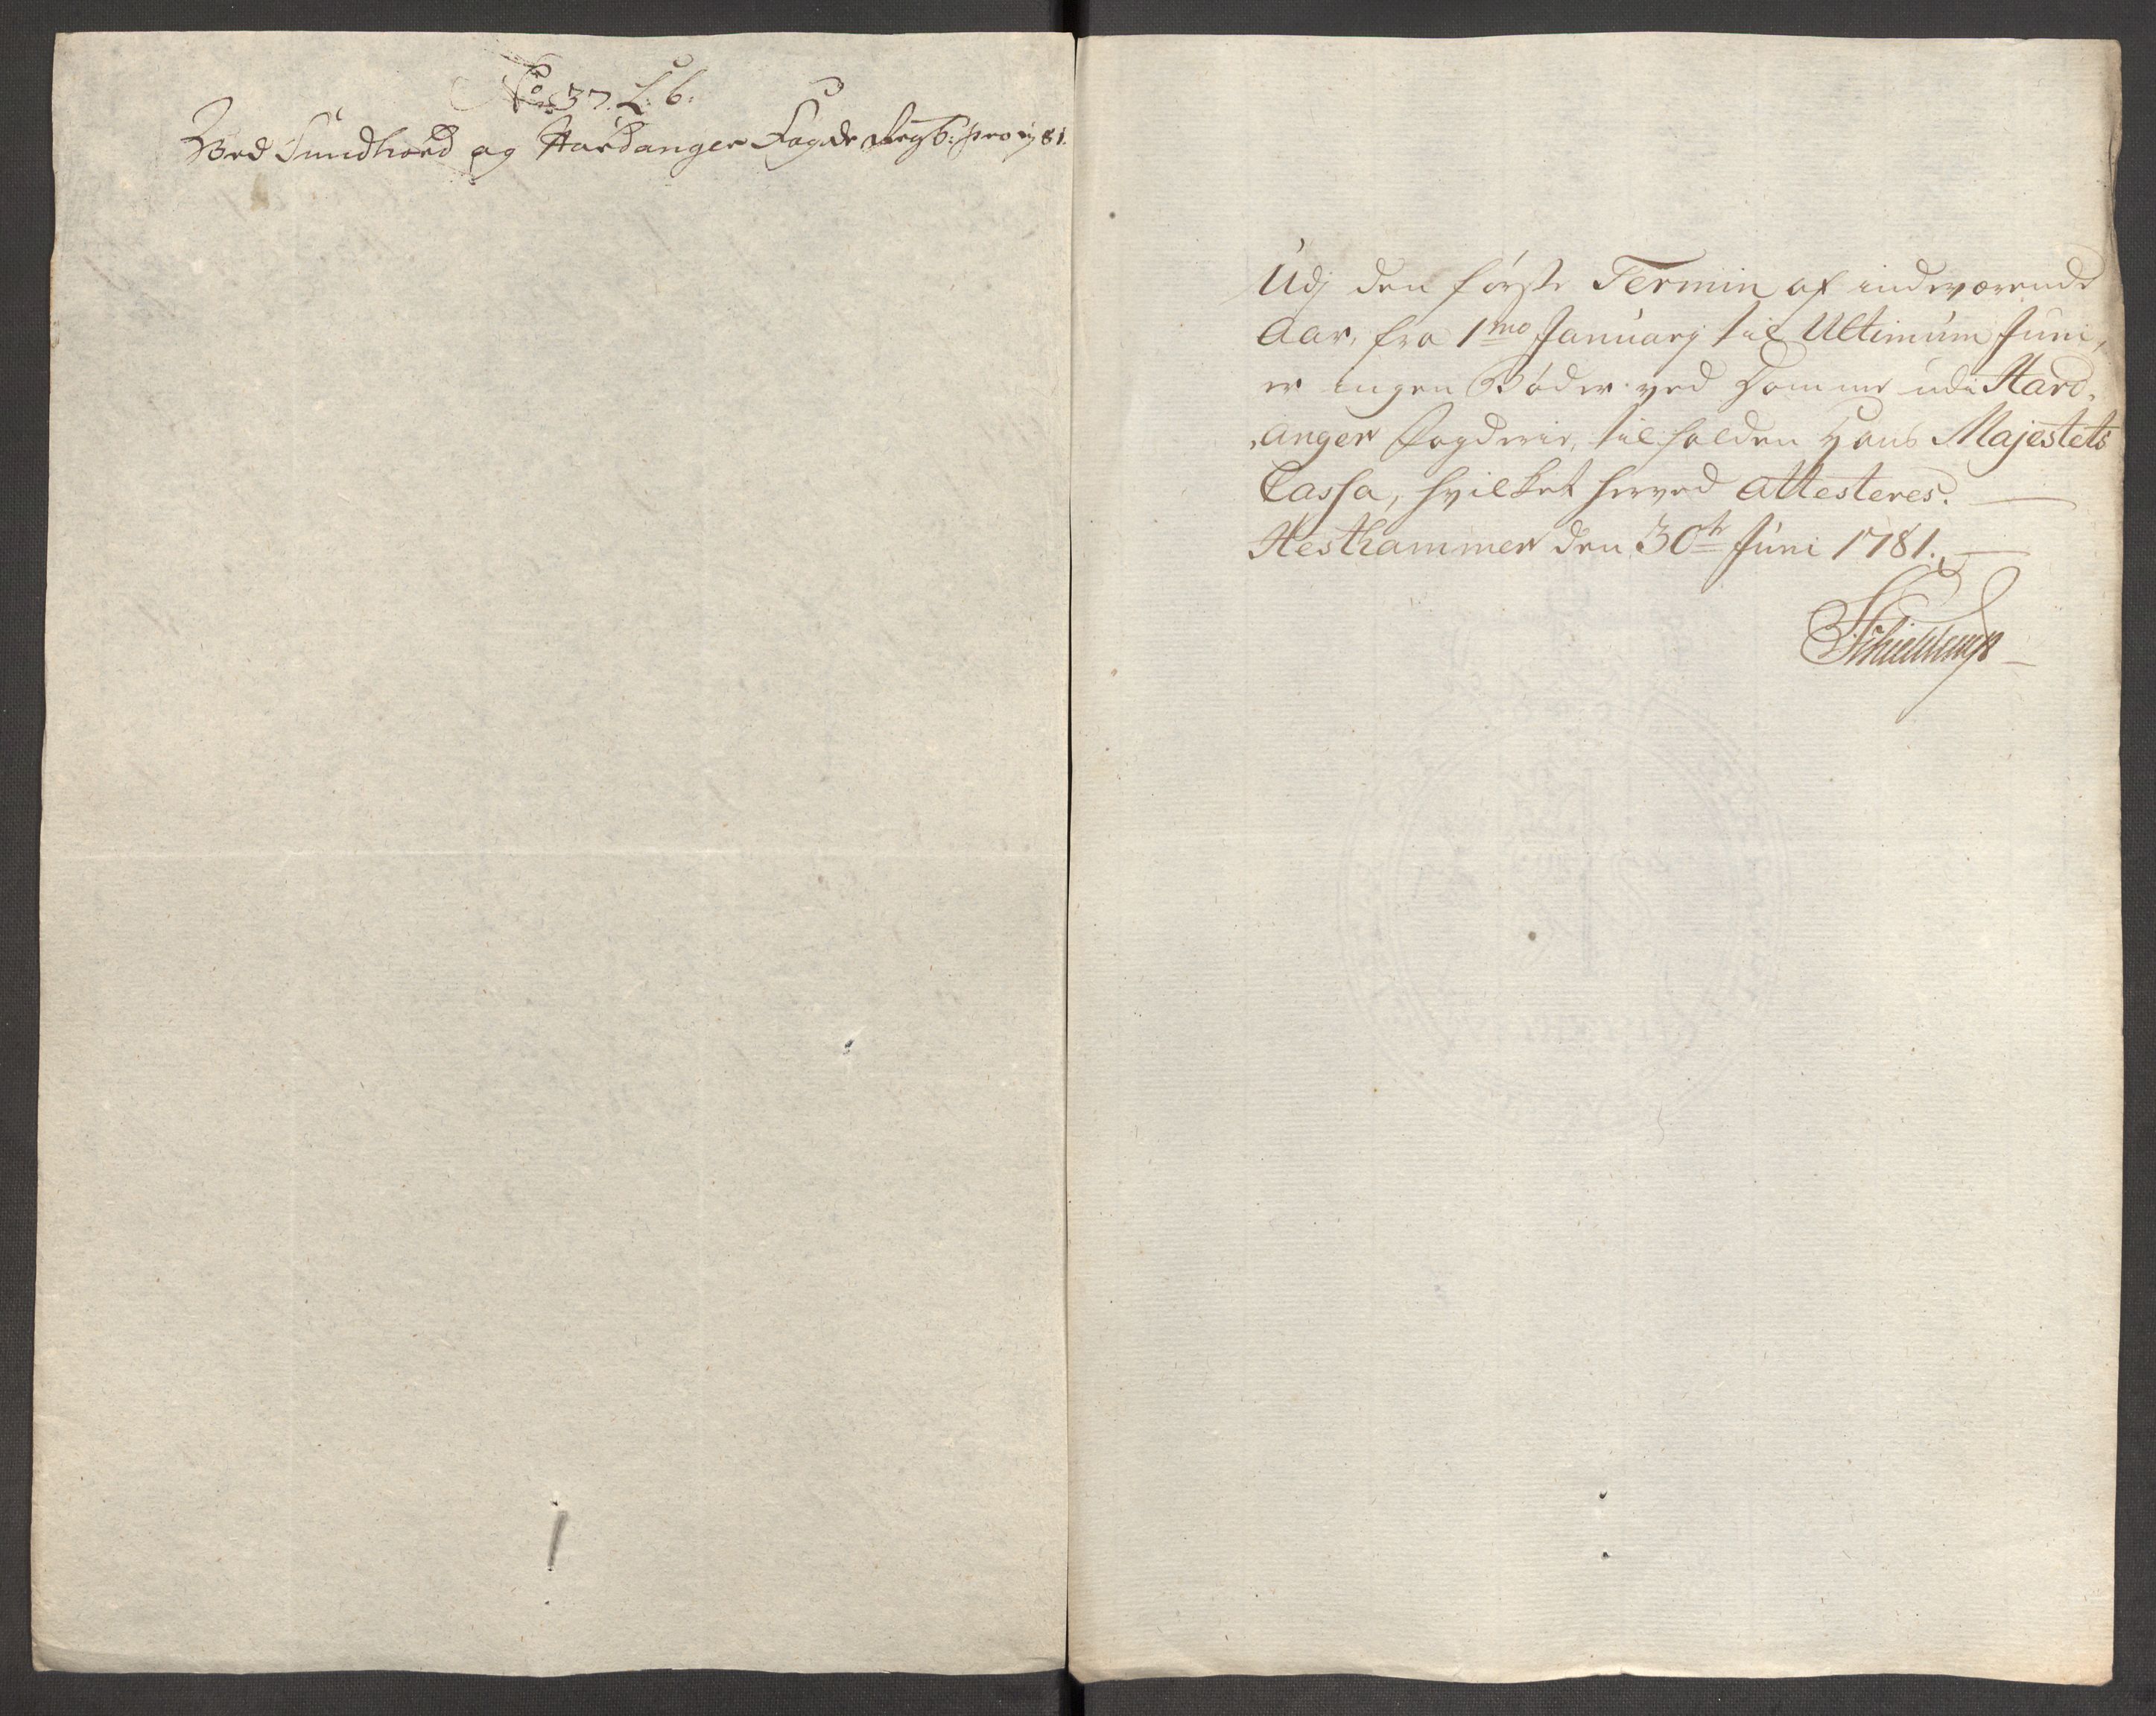 No 37. L: b:
Ved Sundhord og Hardanger Fogds Regsb: pro 1781.
Udj den første Termin af indeværende
Aar, fra 1mo Januarj til Ultimum Juni,
er ingen Bøder ved Domme udi Hard-
anger Fogderie, tilfalden Hans Majestets
Cassa, hvilket herved attesteres.
Hesthammer den 30te Juni 1781.